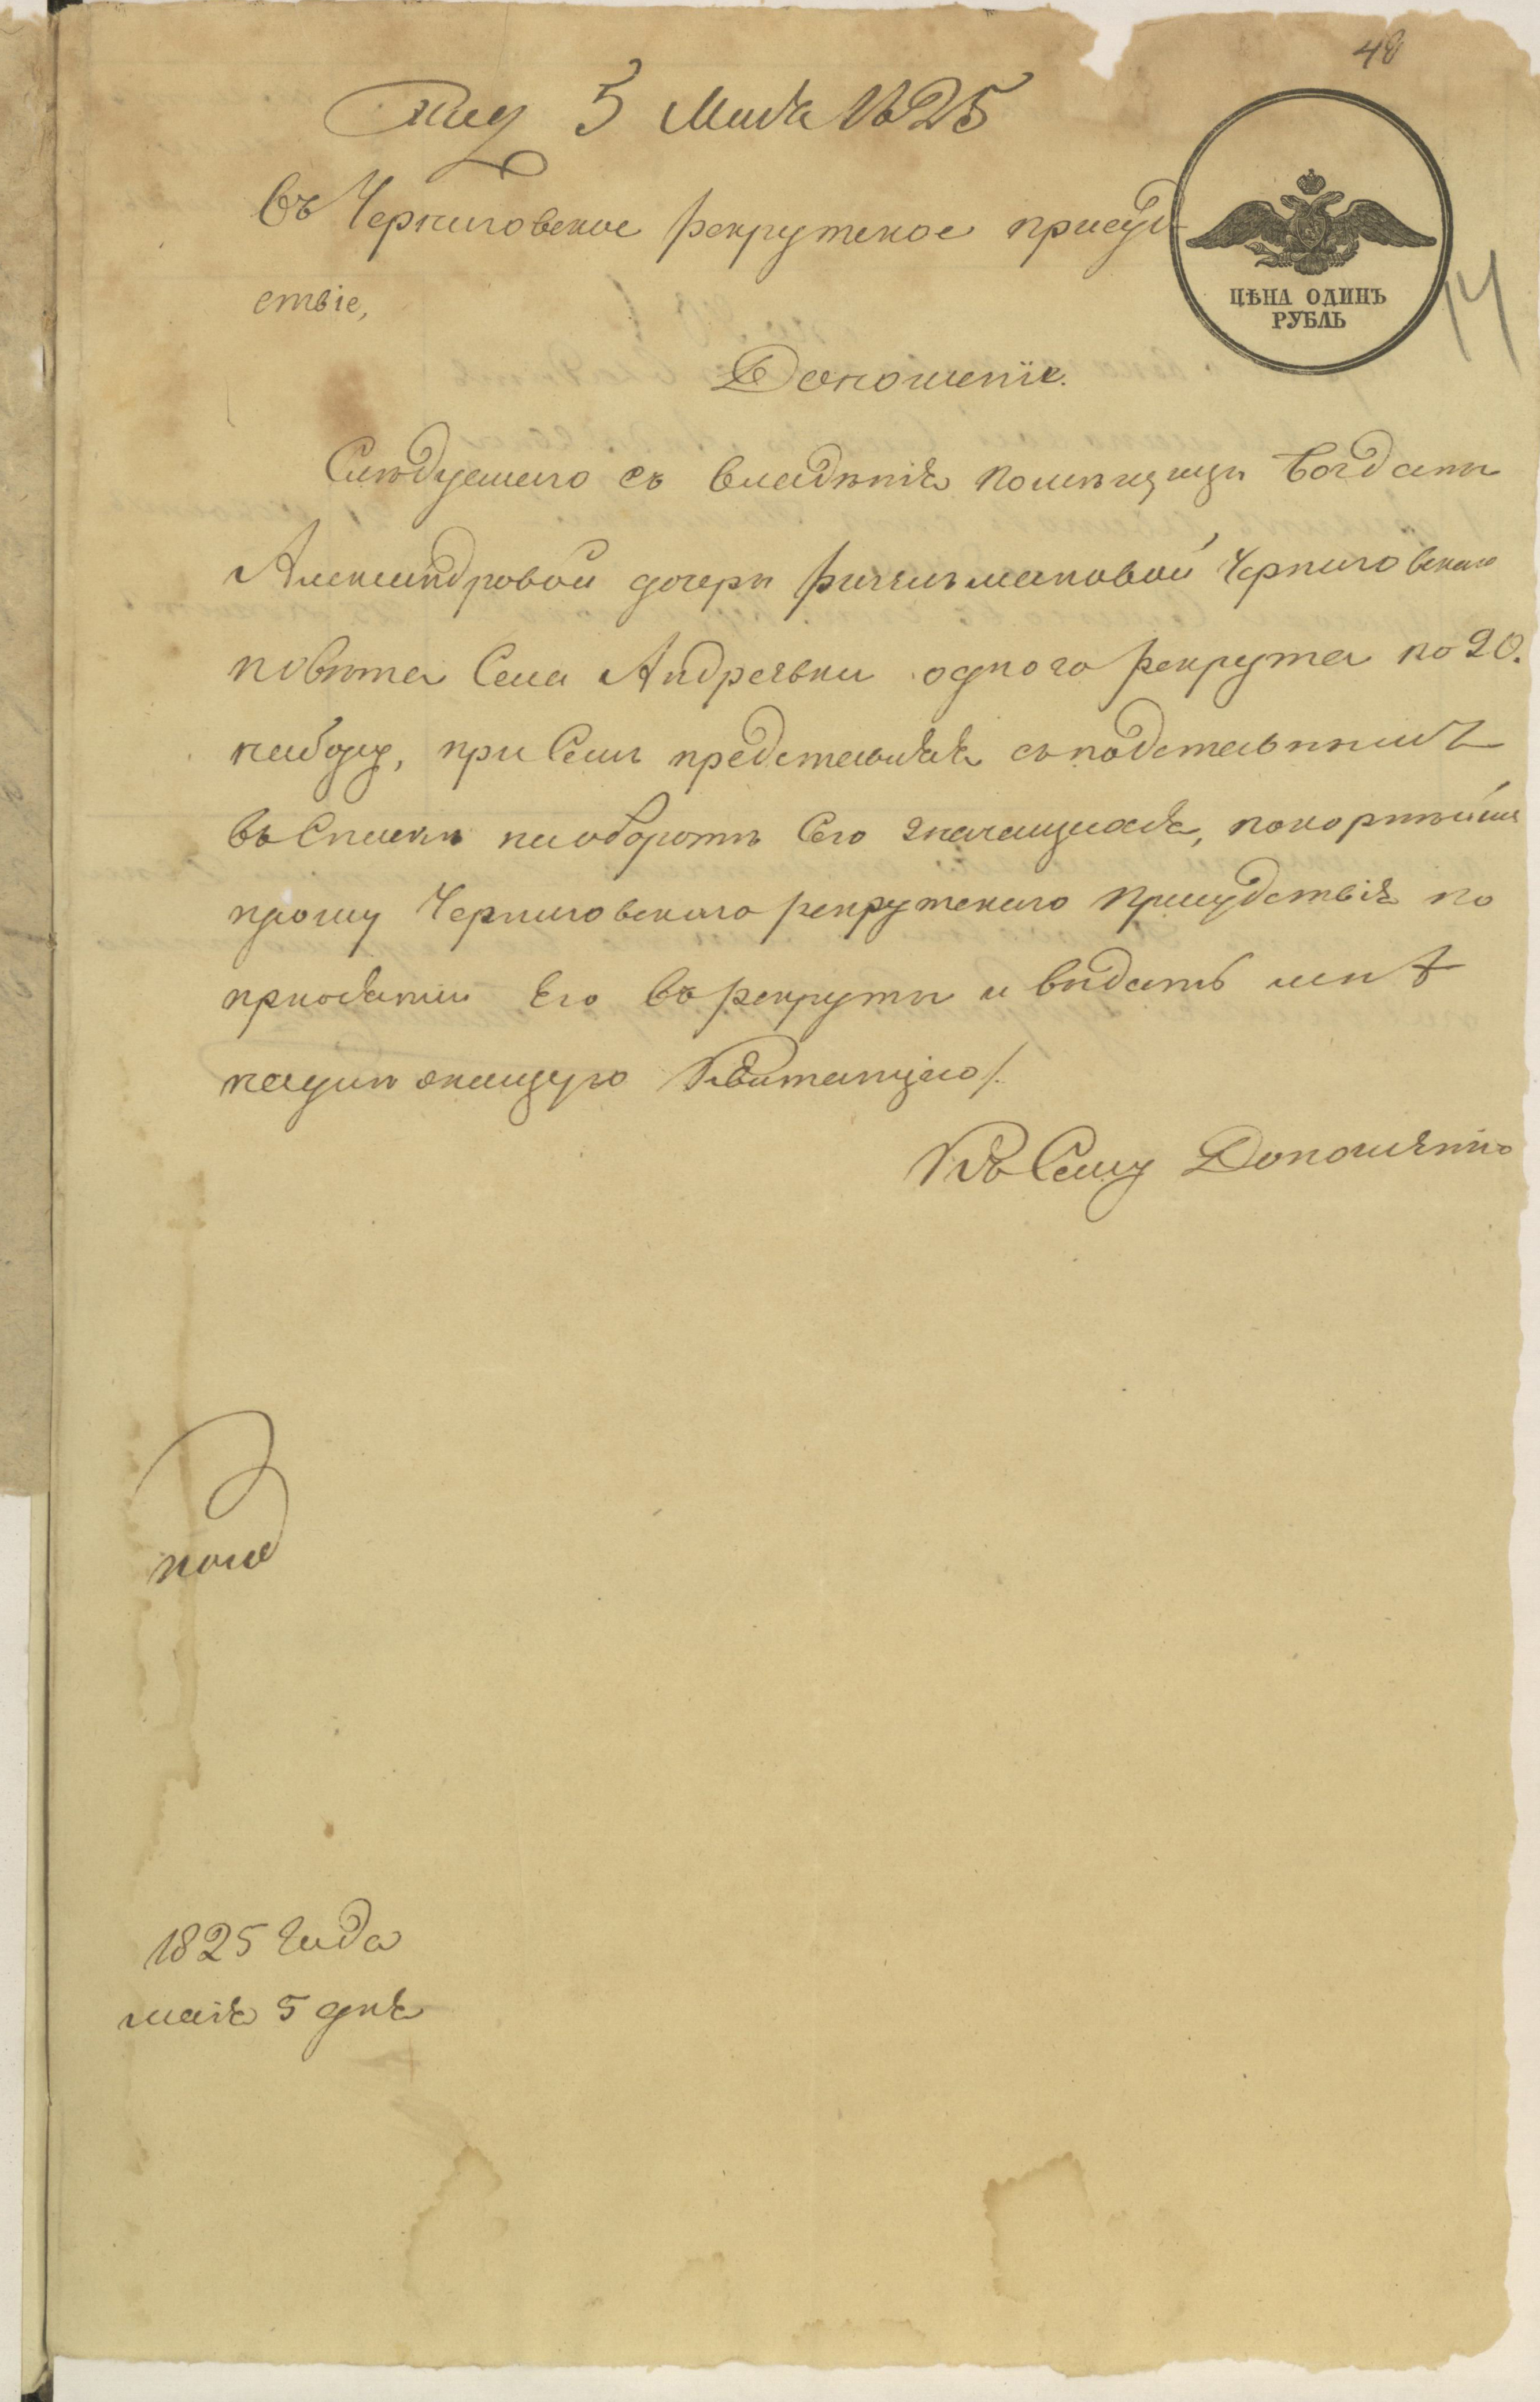 48
5 Мая 1825
въ Черниговское рекрутское присуд
ствіе,
ЦѢНА ОДИНЪ
РУБЛЬ
14
Доношеніе.
Слѣдуемаго съ владѣнія помѣщицы Богданы
Александровой дочери Черниговскаго
повѣта Села Андреевки одного рекрута по 90.
набору, при Семъ представляя съ подставнимъ
въ Спискѣ наоборотѣ Сего значащимся, покорнѣйше
прошу Черниговскаго рекрутскаго присудствія по
принятіи Его въ рекруты и видать мнѣ
надлежащую Квитанцію /.
Къ Сему Доношенію
1825 Года
маія 5 дня